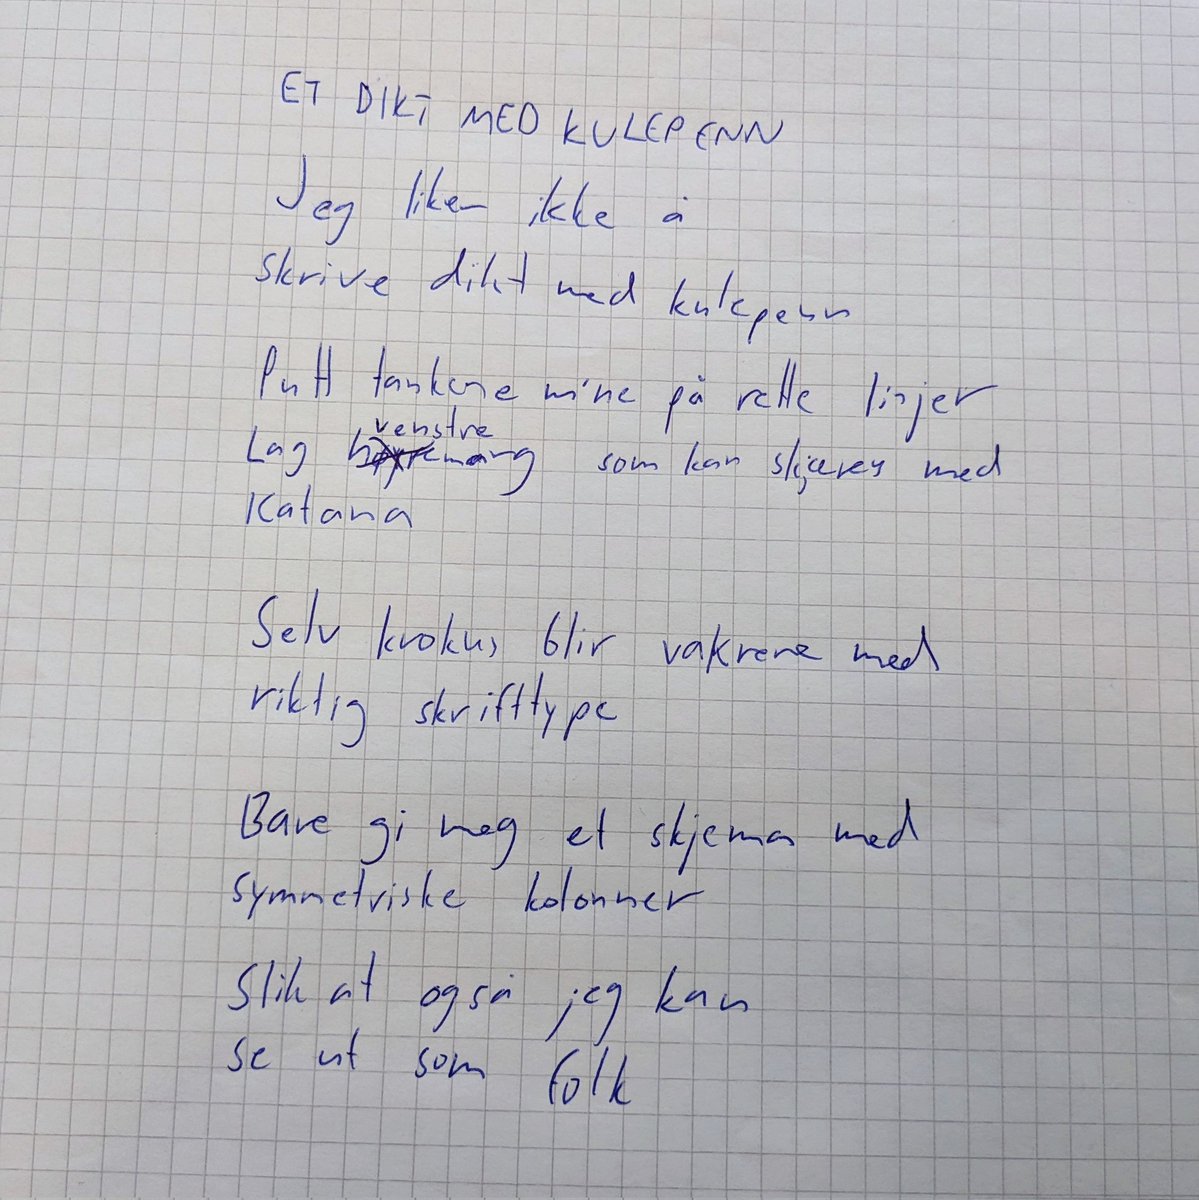 ET DIKT MED KULEPENN
Jeg liker ikke å
skrive dikt med kulepenn
Putt tankene mine på rette linjer
venstre
Lag marg som kan skjæres med
Katana
Selv krokus blir vakrere med
riktig skrifttype
Bare gi meg et skjema med
symmetriske kolonner
Slik at også jeg kan
se ut som folk